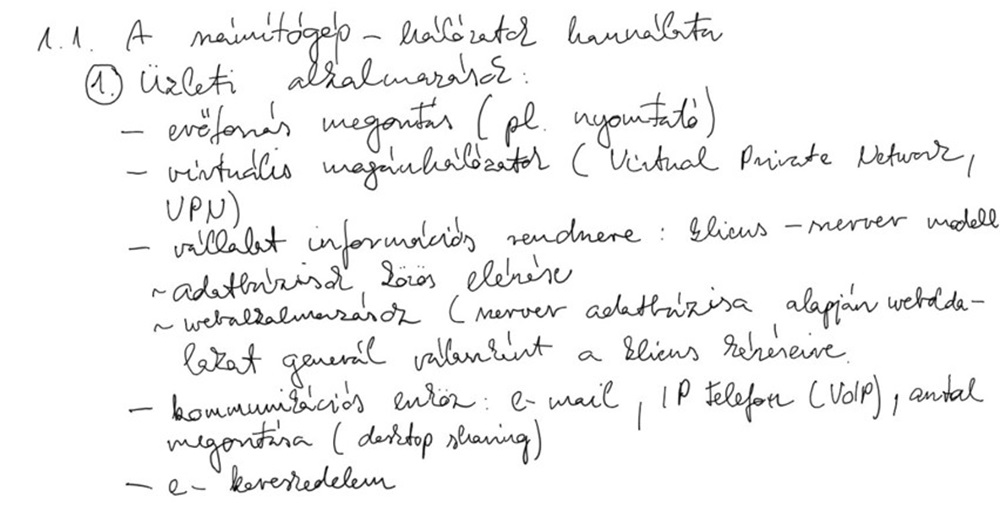 1.1. A számítógép – hálózatok használata
① Üzleti alkalmazások:
– erőforrás megosztás (pl. nyomtató)
– virtuális magánhálózatok (Virtual Private Network,
VPN)
– vállalat információs rendszere : kliens – szerver modell
~ adatbázisok közös elérése
~ webalkalmazások (szerver adatbázisa alapján webolda-
lakat generál válaszként a kliens kéréseire.
– kommunikációs eszköz : e-mail, IP telefon (VoIP), asztal
megosztása (desktop sharing)
– e- kereskedelem